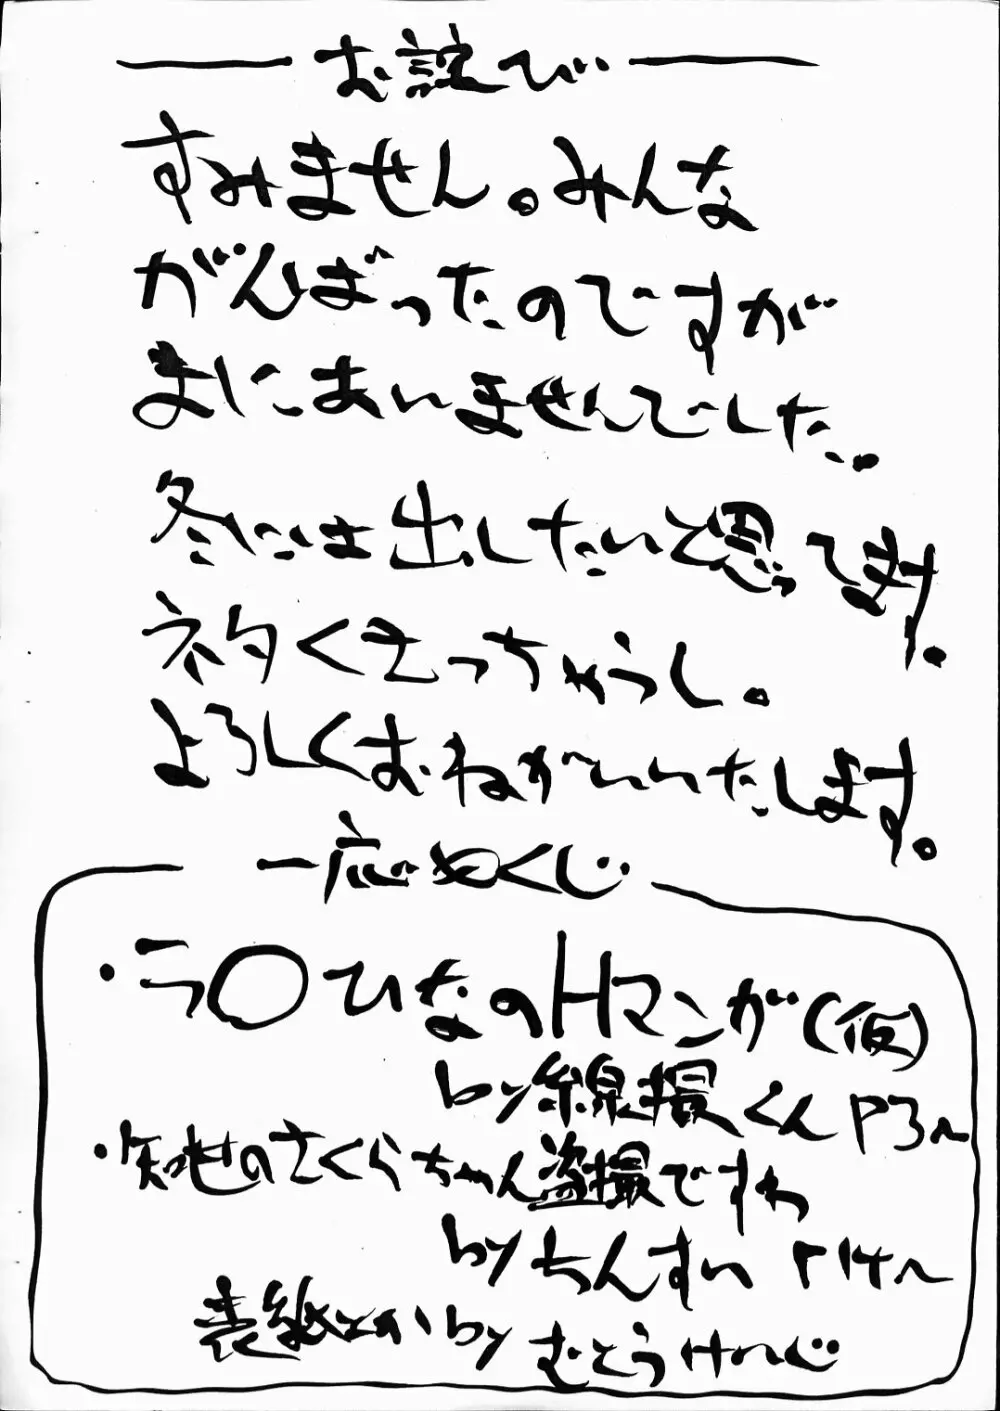 お詫び
すみません。みんな
がんばったのですが
まにあいませんでした。
冬には出したいと思ってます。
ネタくさっちゃうし。
よろしくおねがいいたします。
一応もくじ
・ラ〇ひなのHマンガ(仮)
by線撮くん P3〜
・知世のさくらちゃん盗撮ですわ
byちんすい P14〜
表紙とか by むとうけーじ